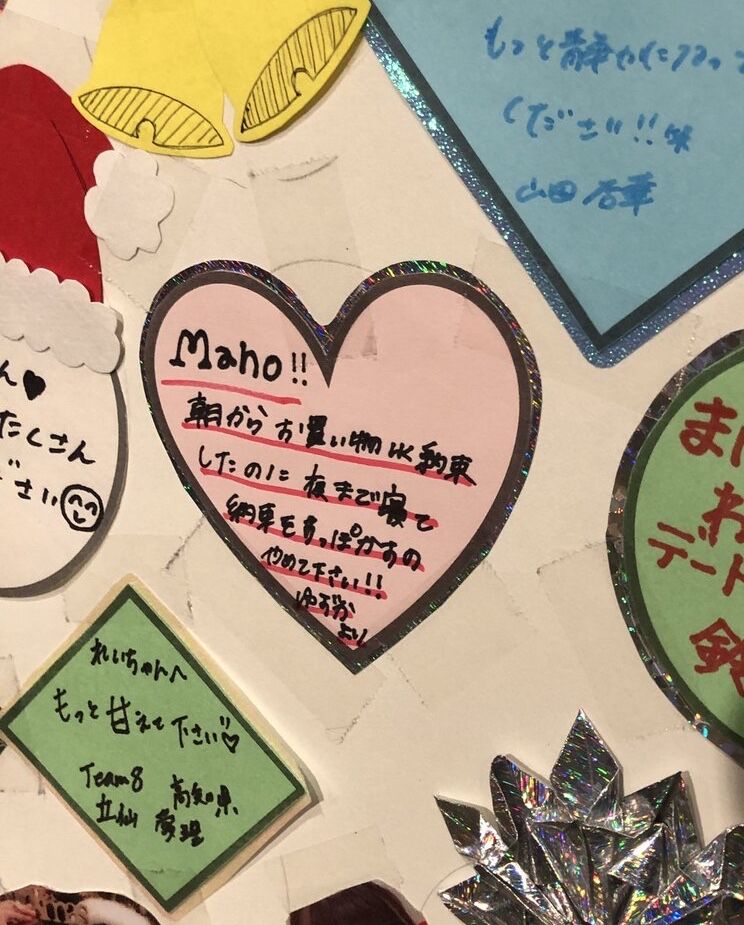 もっと静かに
ください!!
山田杏華
Mano!!
朝からお買い物に約束
したのに夜まで寝て
約束をすっぽかすの
やめて下さい!!
ゆずか
より
ん♥
たくさん
ださい
れいちゃんへ
もっと甘えて下さい♡
Team8 高知県
立仙 愛理
ま
デート